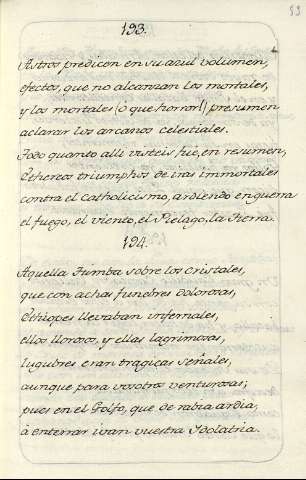 193.
Astros predicen en su azul volumen,
efectos, que no alcanzan los mortales,
y los mortales (ò que horror!) presumen
aclarar los arcanos celestiales.
Todo quanto alli visteis fuè, en resumen,
Ethereos triumphos de iras immortales
contra el Catholicismo, ardiendo en guerra
el fuego, el viento, el Pielago, la Tierra.
194.
Aquella Tumba sobre los cristales,
que con achas funebres dolorosas,
Ethiopes llevaban infernales,
ellos llorosos, y ellas lagrimosas,
lugubres eran tragicas señales,
aunque para vosotros venturosas;
pues en el Golfo, que de rabia ardia,
à enterrar ivan vuestra Idolatria.